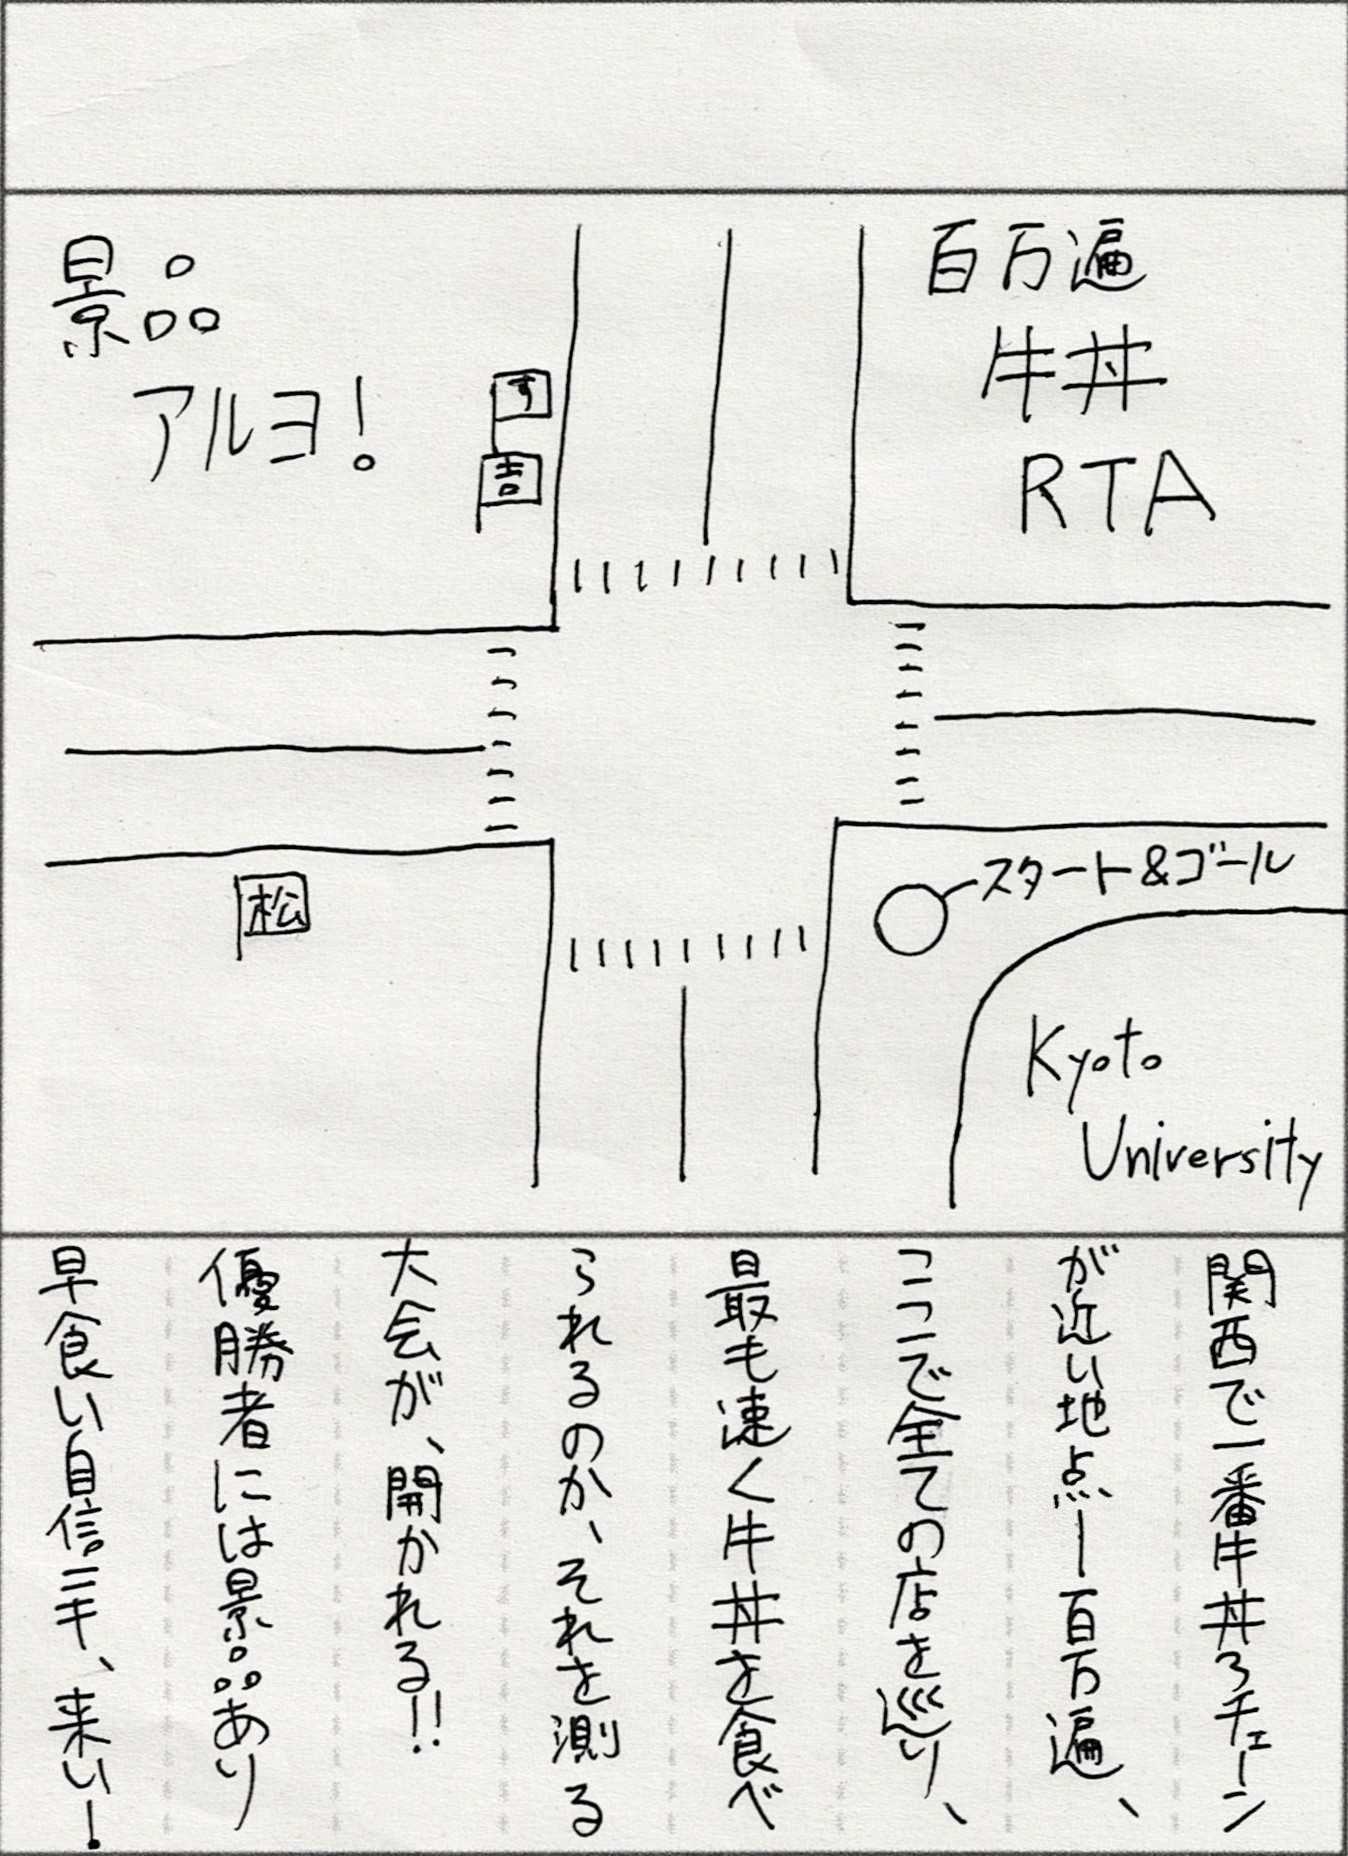 百万遍
牛丼
RTA
景品
アルヨ!
す
吉
松
スタート&ゴール
Kyoto
University
関西で一番牛丼3チェーン
が近い地点ー百万遍、
ここで全ての店を巡り、
最も速く牛丼を食べ
られるのか、それを測る
大会が、開かれる!!
優勝者には景品あり
早食い自信ニキ、来い!